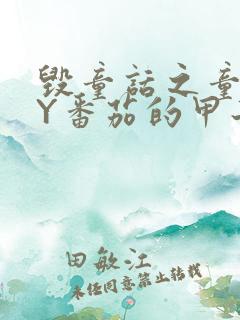 毁童话之童
Y番茄的甲
田敏江
未经同意禁止转载